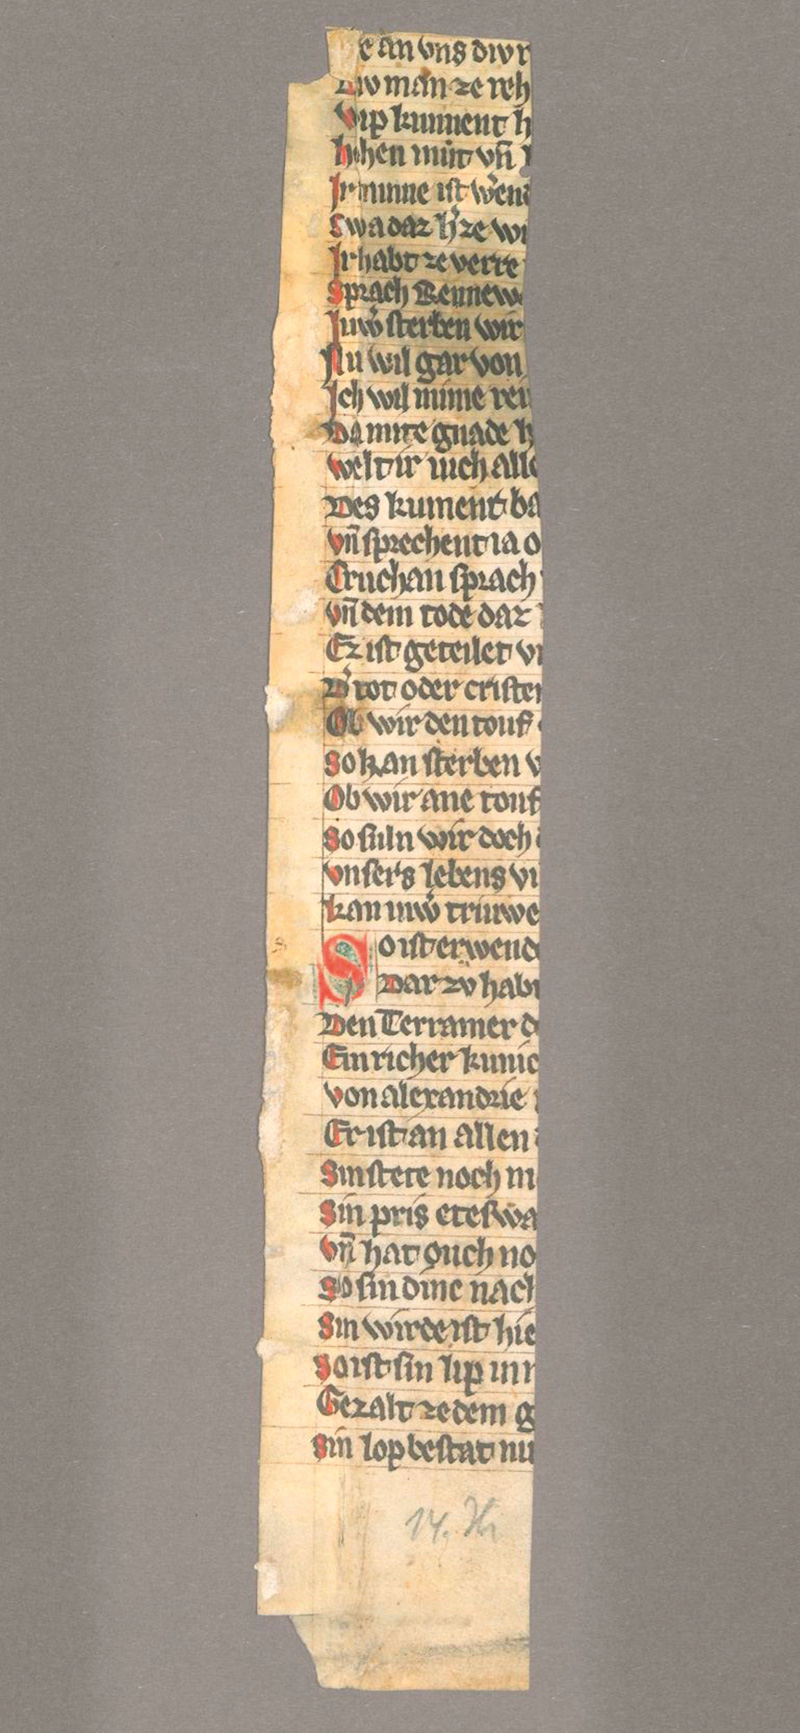 e an vns diw r
Diw man ze reh
Wip kunnent h
hohen muͦt vn̄ 
Ir minne ist wend
Swa daz h'ze wi
Ir habt ze verre
Sprach Rennewa
Juw' sterben wir
Nu wil gar von
Ich wil mime ren
Da mite gnade h
welt ir iuch alle
Des kument ba
vn̄ sprechent ia o
Truchan sprach
vn̄ dem tode daz
Ez ist geteilet vn
D' tot oder cristen
Ob wir den touf
So kan sterben v
Ob wir ane touf
So suln wir doch
vnsers lebens vi
kan iuw' triuwe
So ist erwende
Dar zv̊ habt
Den Terramer d
Ein richer kunic
von alexandrie
Er ist an allen
Sin stete noch ni
Sin pris eteswa
vn̄ hat ouch no
So sin dine nach
Sin wirde ist hie
So ist sin lip im
Gezalt ze dem g
Sin lop bestat nu
14. Jh